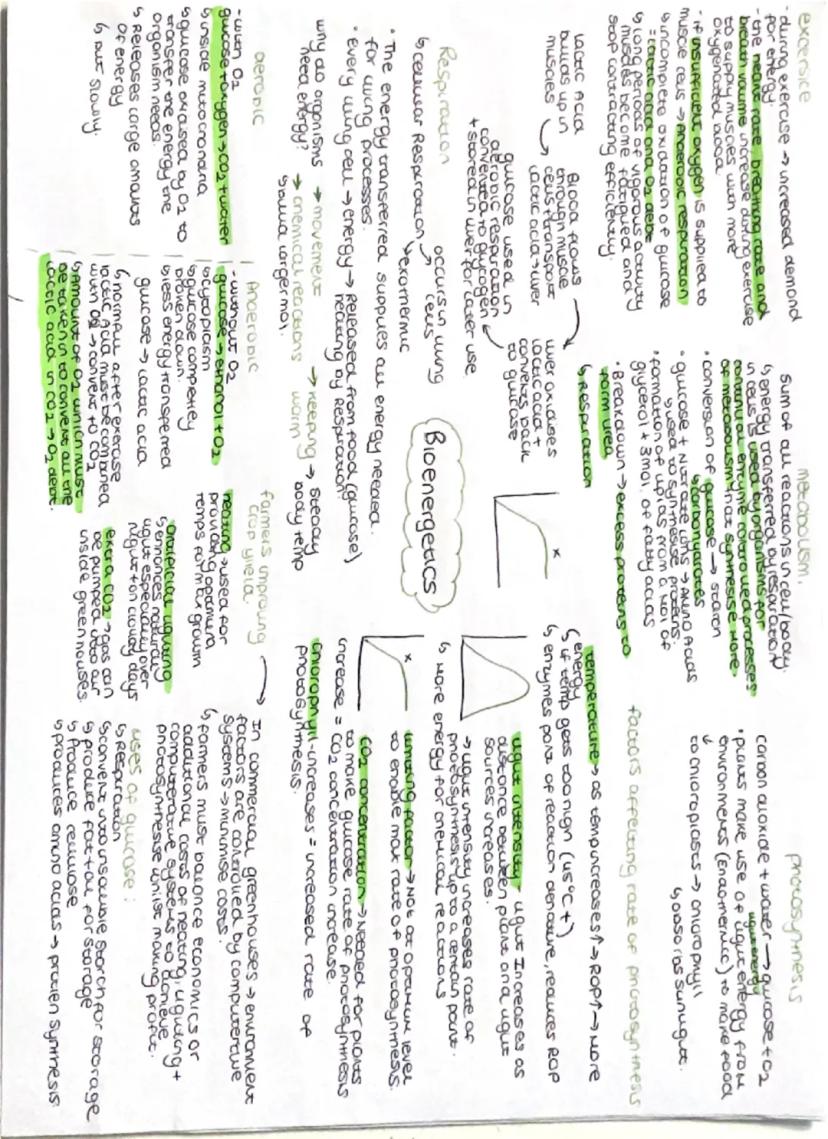 exersice
- during exercise → increased demand
for energy.
- the heart rate, breathing rate and
breath volume increase during exercise
to supply muscles with more
oxygenated blood
- if insufficient oxygen is supplied to
muscle cells → Anaerobic respiration
↳ incomplete oxidation of glucose
= lactic acid and O2 debt
↳ long periods of vigorous activity
muscles become fatigued and
stop contracting efficiently.
lactic Acid
builds up in
muscles
Blood flows
through muscle
cells + transport
lactic acid → liver
liver oxidises
lactic acid +
converts back
to glucose
glucose used in
aerobic respiration
converted to glycogen
+ stored in liver for later use.
metabolism.
sum of all reactions in cell/body.
↳ energy transferred by respiration
in cells is used by organisms for
continual enzyme controlled processes
of metabolism that synthesise more
• conversion of glucose → starch
↳ carbohydrates
• glucose + Nitrate ions → Amino Acids
↳ used to synthesise proteins.
• formation of lipids from a mol of
glycerol + 3 mol. of fatty acids
• Breakdown → excess proteins to
form urea
↳ Respiration
photosynthesis
carbon dioxide + water → glucose + O2
light energy
• plants make use of light energy from
environments (Endothermic) to make food
to chloroplasts → chlorophyll
↳ absorbs sunlight.
factors affecting rate of photosynthesis
temperature → as temp increases↑ → ROP↑ → more
energy
↳ if temp gets too high (45°C+)
↳ enzymes point of reaction denature, reduces ROP
light intensity - light increases as
distance between plant and light
sources increases.
→ light intensity increases rate of
photosynthesis up to a certain point.
↳ more energy for chemical reactions
limiting factor → Not at optimum level
to enable max rate of photosynthesis.
CO2 concentration → Needed for plants
to make glucose rate of photosynthesis
increase = CO2 concentration increase.
chlorophyll - increases = increased rate of
photosynthesis.
Bioenergetics
Respiration
↳ cellular Respiration
occurs in living
cells
exothermic
• The energy transferred supplies all energy needed
for living processes.
• every living cell → energy → Released from food (glucose)
heating by Respiration
why do organisms
need energy?
→ movement
→ chemical reactions
↳ build larger mol.
→ keeping
warm
→ steady
body temp
aerobic
- with O2
glucose + oxygen → CO2 + water
↳ inside mitochondria
↳ glucose oxidised by O2 to
transfer the energy the
organism needs.
↳ Releases large amounts
of energy
↳ but slowly.
Anaerobic
- without O2
glucose → ethanol + O2
↳ cytoplasm
↳ glucose completley
broken down.
↳ less energy transferred
glucose → lactic acid
↳ normal after exercise
lactic acid must be combined
with O2 → convert to CO2
↳ amount of O2 which must
be taken in to convert all the
lactic acid in CO2 → O2 debt.
farmers improving
crop yield.
heating → used for
providing optimum
temps for max growth
artificial lighting
↳ enhances natural
light especially over
night + on cloudy days
extra CO2 → gas can
be pumped into air
inside greenhouses.
In commercial greenhouses → enviroment
factors are controlled by computerative
systems → minimise costs.
↳ farmers must balance economics or
additional costs of heating, lighting +
computerative systems to achieve
photosynthesise whilst making profit.
uses of glucose:
↳ Respiration
↳ convert into insoluble starch for storage
↳ produce fat + oil for storage
↳ Produce cellulose
↳ produces amino acids → protien synthesis.